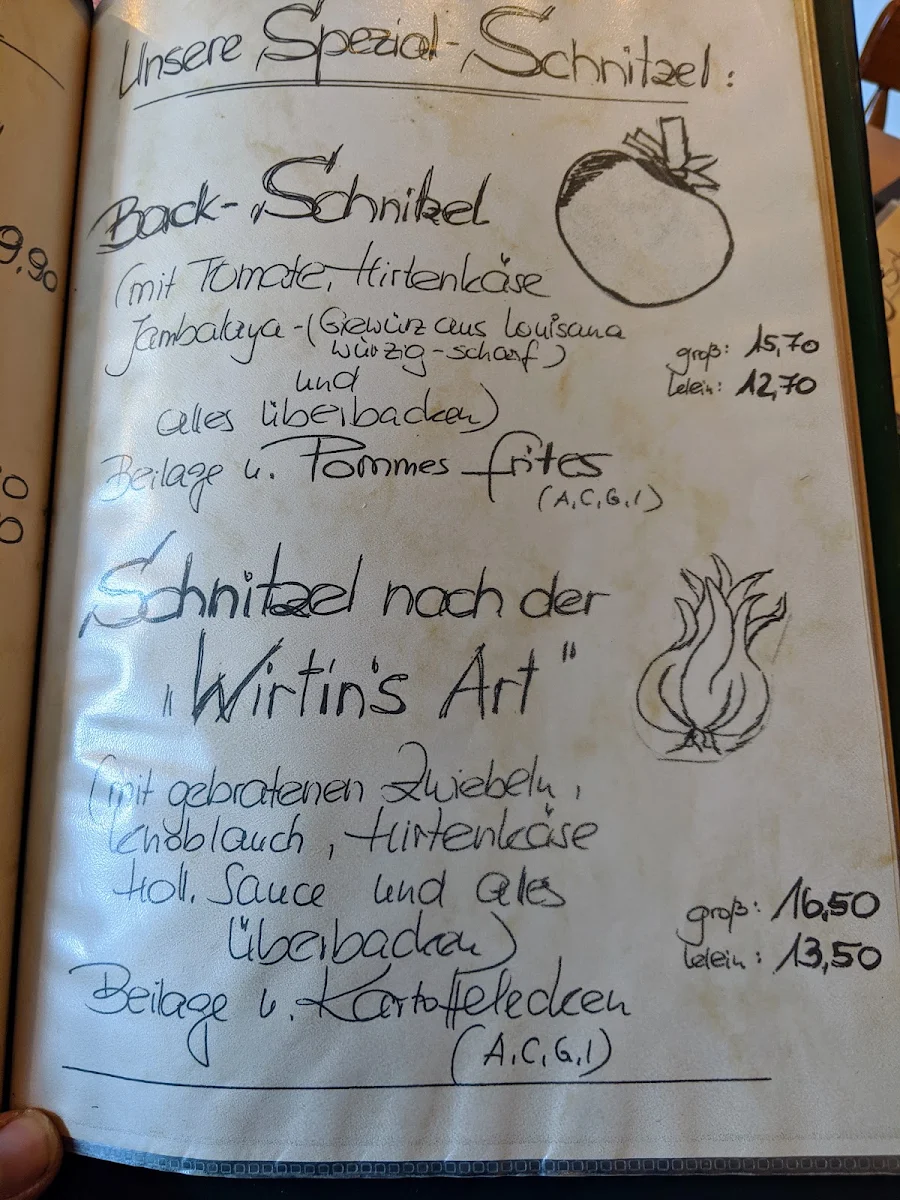 Unsere Spezial-Schnitzel:
Back-Schnitzel
(mit Tomate, Hirtenkäse
Jambalaya-(Gewürz aus Louisana
würzig-scharf)
und
alles überbacken)
groß: 15,70
klein: 12,70
Beilage u. Pommes frites
(A,C,G,I)
Schnitzel nach der
„Wirtin's Art"
(mit gebratenen Zwiebeln,
Knoblauch, Hirtenkäse
Holl. Sauce und alles
überbacken)
groß: 16,50
klein: 13,50
Beilage u. Kartoffelecken
(A,C,G,I)
9,90
0
0